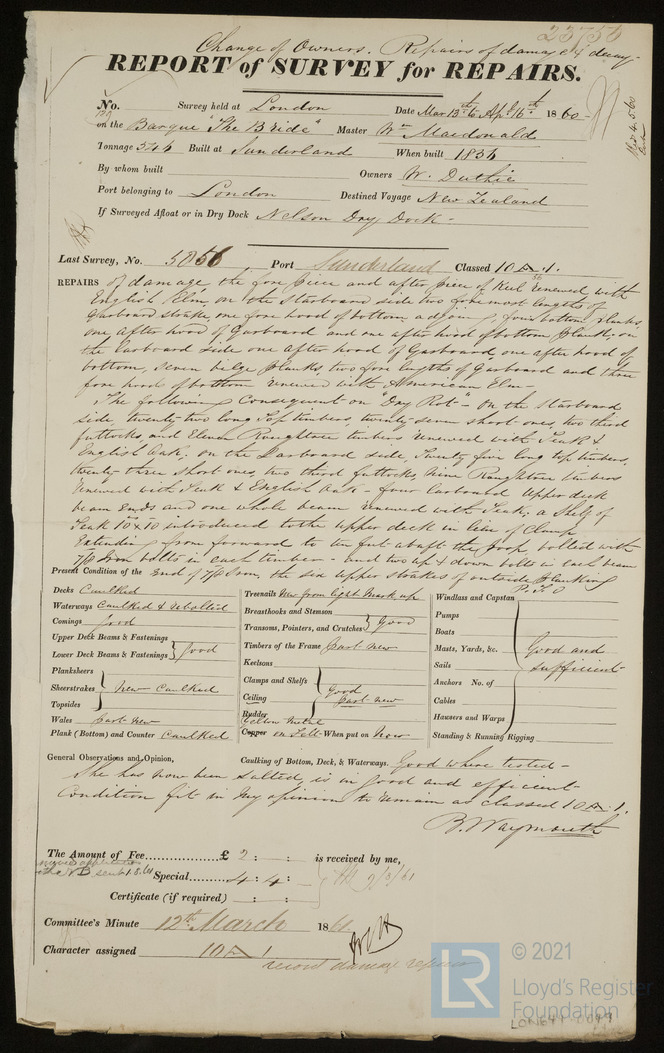 Change of Owners. Repairs of damage & decay
REPORT of SURVEY for REPAIRS.
No. Survey held at London Date Mar 13th to Apl 16th 1860
on the Barque "The Bride" Master Wm Macdonald
Tonnage 546 Built at Sunderland When built 1856
By whom built Owners W. Duthie
Port belonging to London Destined Voyage New Zealand
If Surveyed Afloat or in Dry Dock Nelson Dry Dock -
Last Survey, No. 5056 Port Sunderland Classed 10 A. 1.
REPAIRS of damage, the fore piece and after piece of Keel renewed with
English Elm, on the Starboard side two foremost lengths of
Garboard strake, one fore hood of bottom adjoining, four bottom planks,
one after hood of Garboard and one after hood of bottom plank; on
the Larboard side one after hood of Garboard, one after hood of
bottom, seven bilge planks, two fore lengths of Garboard and three
fore hoods of bottom renewed with American Elm -
The following consequent on "Dry Rot" - On the Starboard
side, twenty two long Top timbers, twenty seven short ones, two third
futtocks, and Eleven Roughtree timbers renewed with Teak &
English Oak; on the Larboard side, Twenty five long top timbers,
twenty three short ones, two third futtocks, nine Roughtree timbers
renewed with Teak & English Oak - four Larboard Upper deck
beam Ends and one whole beam renewed with Teak; a Shelf of
Teak 10 x 10 introduced to the upper deck in lieu of Clamp
Extending from forward to ten feet abaft the poop, bolted with
7/8 Iron bolts in each timber - and two up & down bolts in each beam
End of 7/8 Iron, the six upper strakes of outside planking
P.T.O
Present Condition of the
Decks Caulked
Waterways Caulked & rebolted
Comings Good
Upper Deck Beams & Fastenings
Lower Deck Beams & Fastenings } Good
Planksheers
Sheerstrakes } New Caulked
Topsides
Wales Part New
Plank (Bottom) and Counter Caulked
Treenails New from light mark up
Breasthooks and Stemson
Transoms, Pointers, and Crutches } Good
Timbers of the Frame Part New
Keelsons
Clamps and Shelfs } Good
Ceiling Part new
Rudder
Yellow Metal
Copper on Felt - When put on Now
Windlass and Capstan
Pumps
Boats
Masts, Yards, &c. } Good and
Sails sufficient
Anchors No. of
Cables
Hawsers and Warps
Standing & Running Rigging
General Observations and Opinion, Caulking of Bottom, Deck, & Waterways. Good where tested -
She has now been salted, is in good and efficient
Condition fit in my opinion to remain as classed 10 A 1.
B. Waymouth
The Amount of Fee............... £ 2 : - : - is received by me,
Special........ 4 : 4 : -
Certificate (if required) - : - : -
Committee's Minute 12th March 1861
Character assigned 10 A 1
record damage repairs
LR © 2021
Lloyd's Register
Foundation